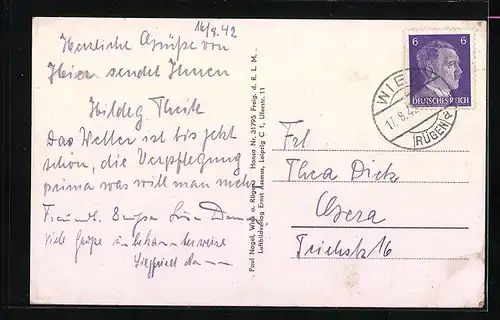 16/8.42
Herzliche Grüße von
Hier sendet Ihnen
Hildeg. Theile
Das Wetter ist bis jetzt
schön, die Verpflegung
prima was will man mehr
viele Grüße
Siegfried
Paul Nagel, Wiek a. Rügen Hansa Nr. 31795 Freig. d. R. L. M.
Luftbildverlag Ernst Assmus, Leipzig C 1, Uferstr. 11
6 6
DEUTSCHES REICH
WIEK
17.8.42
(RÜGEN)
Frl
Thea Dick
Gera